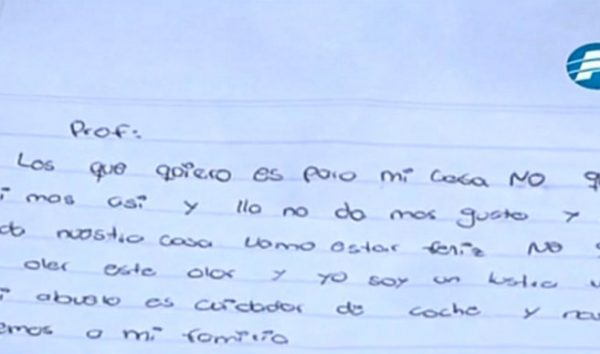 Prof:
Los que quiero es para mi casa NO
mas asi y llo no da mas gusto y
nuestra casa vamo estar feriz NO
oler este olor y yo soy un
abuelo es cuidador de coche y
a mi familia